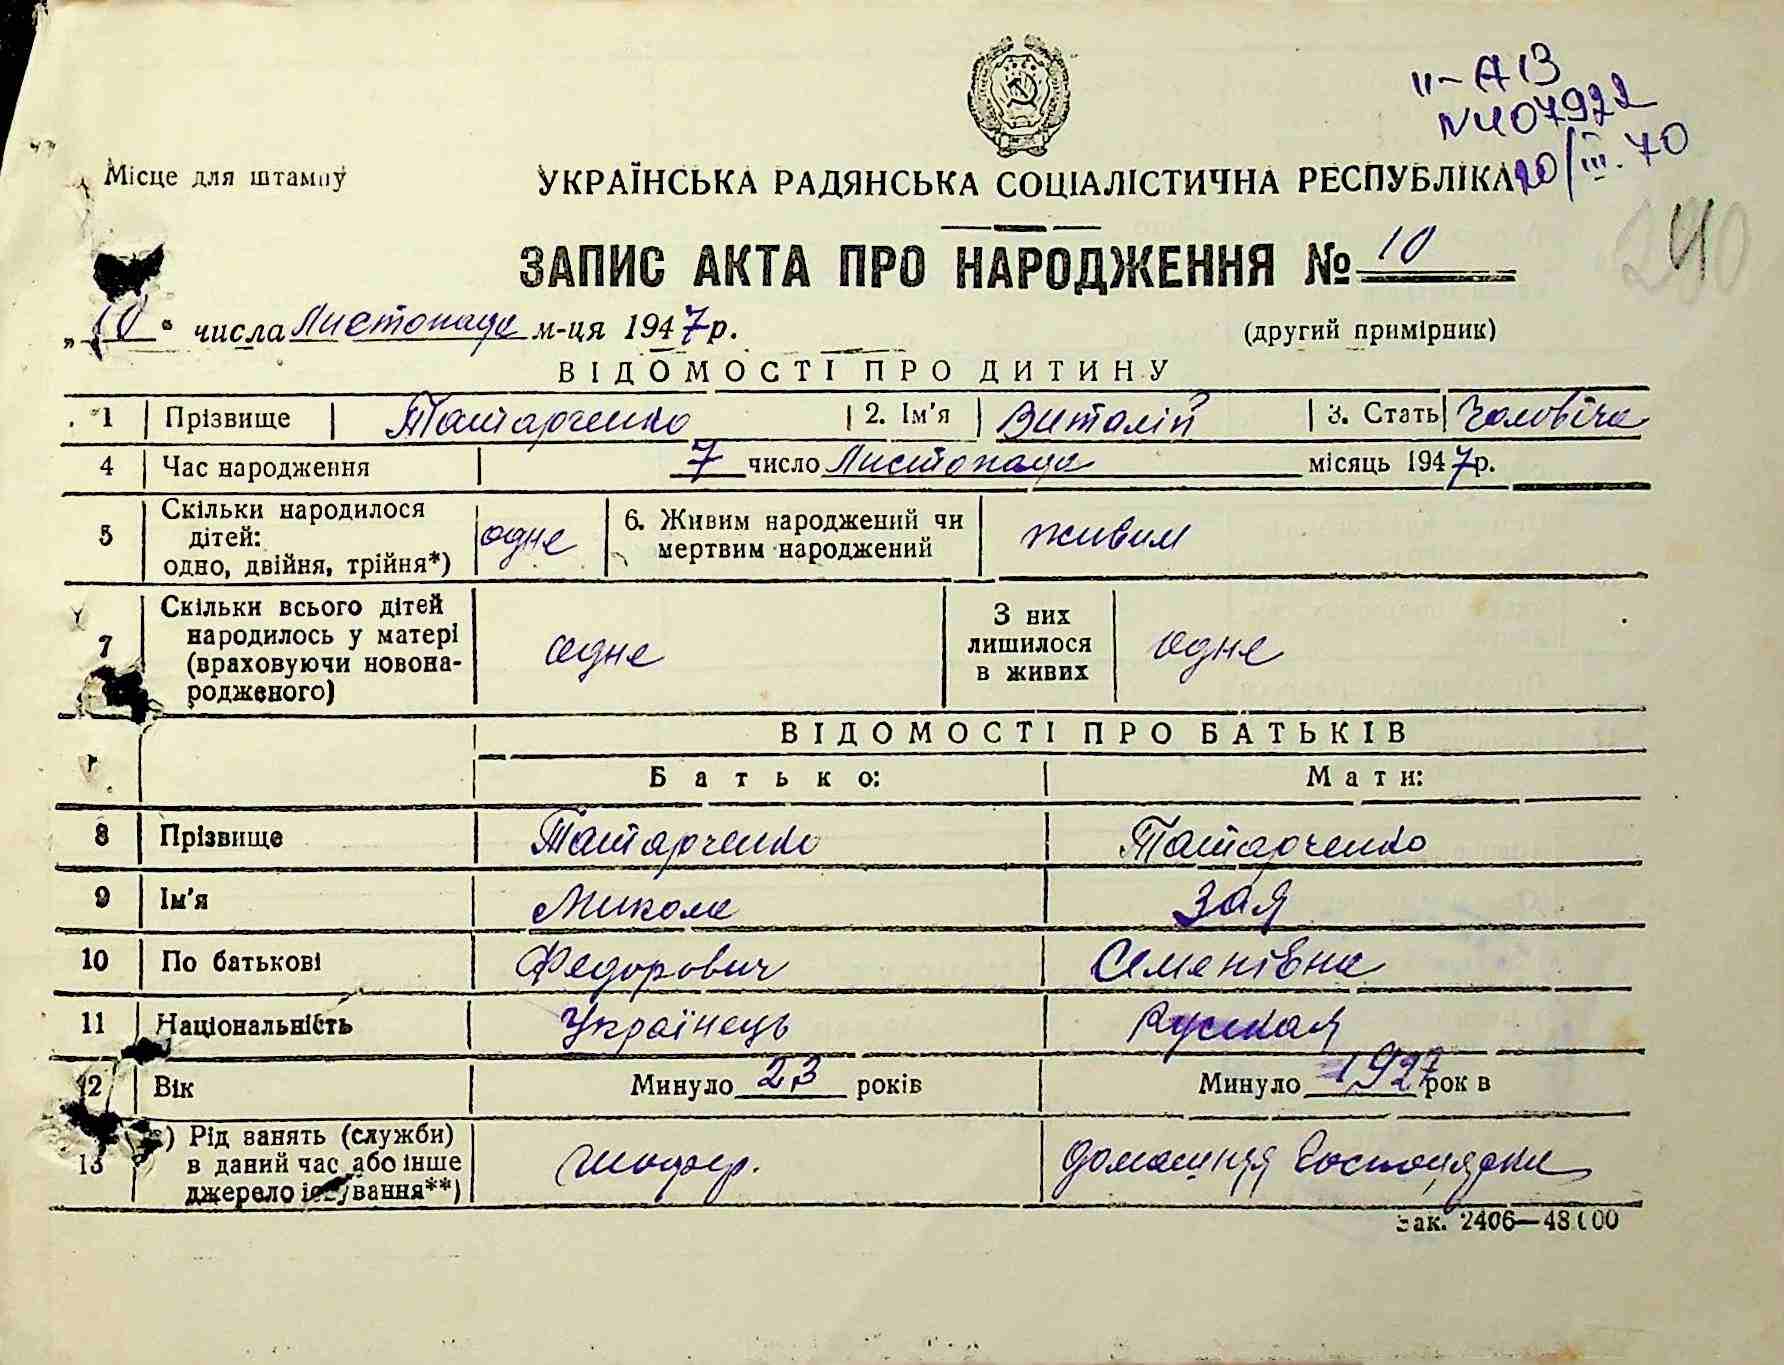 II-АІЗ
№407922
20/III.70
Місце для штампу
УКРАЇНСЬКА РАДЯНСЬКА СОЦІАЛІСТИЧНА РЕСПУБЛІКА
240
ЗАПИС АКТА ПРО НАРОДЖЕННЯ № 10
„10“ числа Листопада м-ця 1947 р.
(другий примірник)
ВІДОМОСТІ ПРО ДИТИНУ
1 Прізвище Татарченко 2. Ім'я Виталій 3. Стать Чоловіча
4 Час народження 7 число Листопада місяць 1947р.
5 Скільки народилося дітей: одно, двійня, трійня*) одне 6. Живим народжений чи мертвим народжений живим
7 Скільки всього дітей народилось у матері (враховуючи новонародженого) одне З них лишилося в живих одне
ВІДОМОСТІ ПРО БАТЬКІВ
Батько: Мати:
8 Прізвище Татарченко Татарченко
9 Ім'я Микола Зоя
10 По батькові Федорович Семенівна
11 Національність Українець Русская
12 Вік Минуло 23 років Минуло 1927 рок в
13 *) Рід занять (служби) в даний час або інше джерело існування**) шофер. домашняя господарка
Зак. 2406—48000